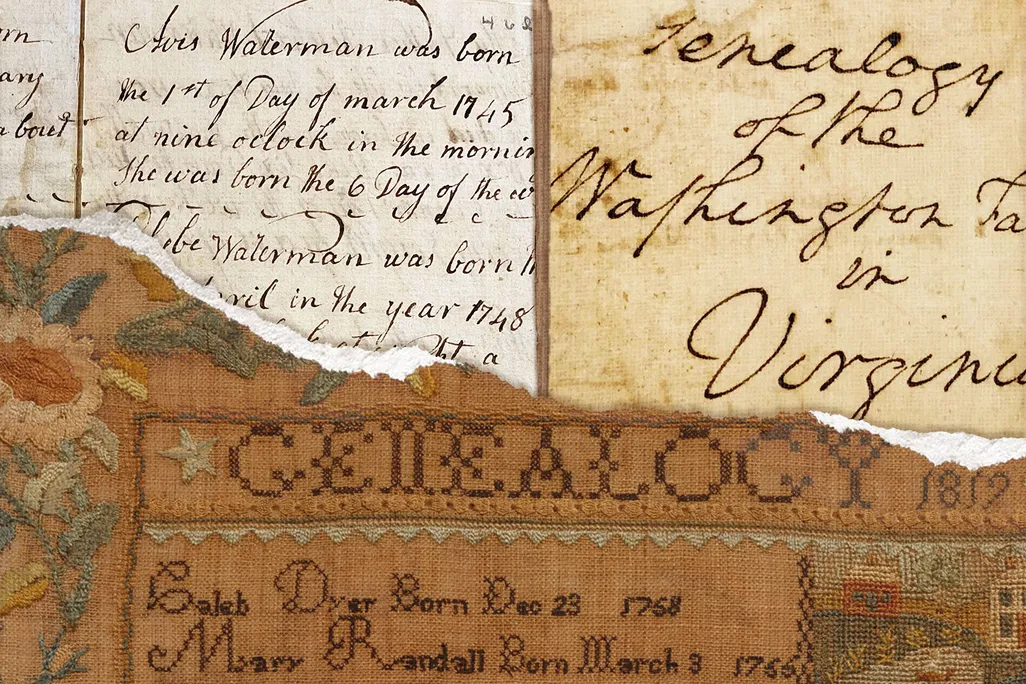 m
ary
about
462
Avis Waterman was born
the 1st of Day of march 1745
at nine oclock in the mornin
She was born the 6 Day of the
Phebe Waterman was born
April in the year 1748
a
Genealogy
of the
Washington Fa
in
Virginia
GENEALOGY 1819
Caleb Dyer Born Dec 23 1768
Mary Randall Born March 3 1766